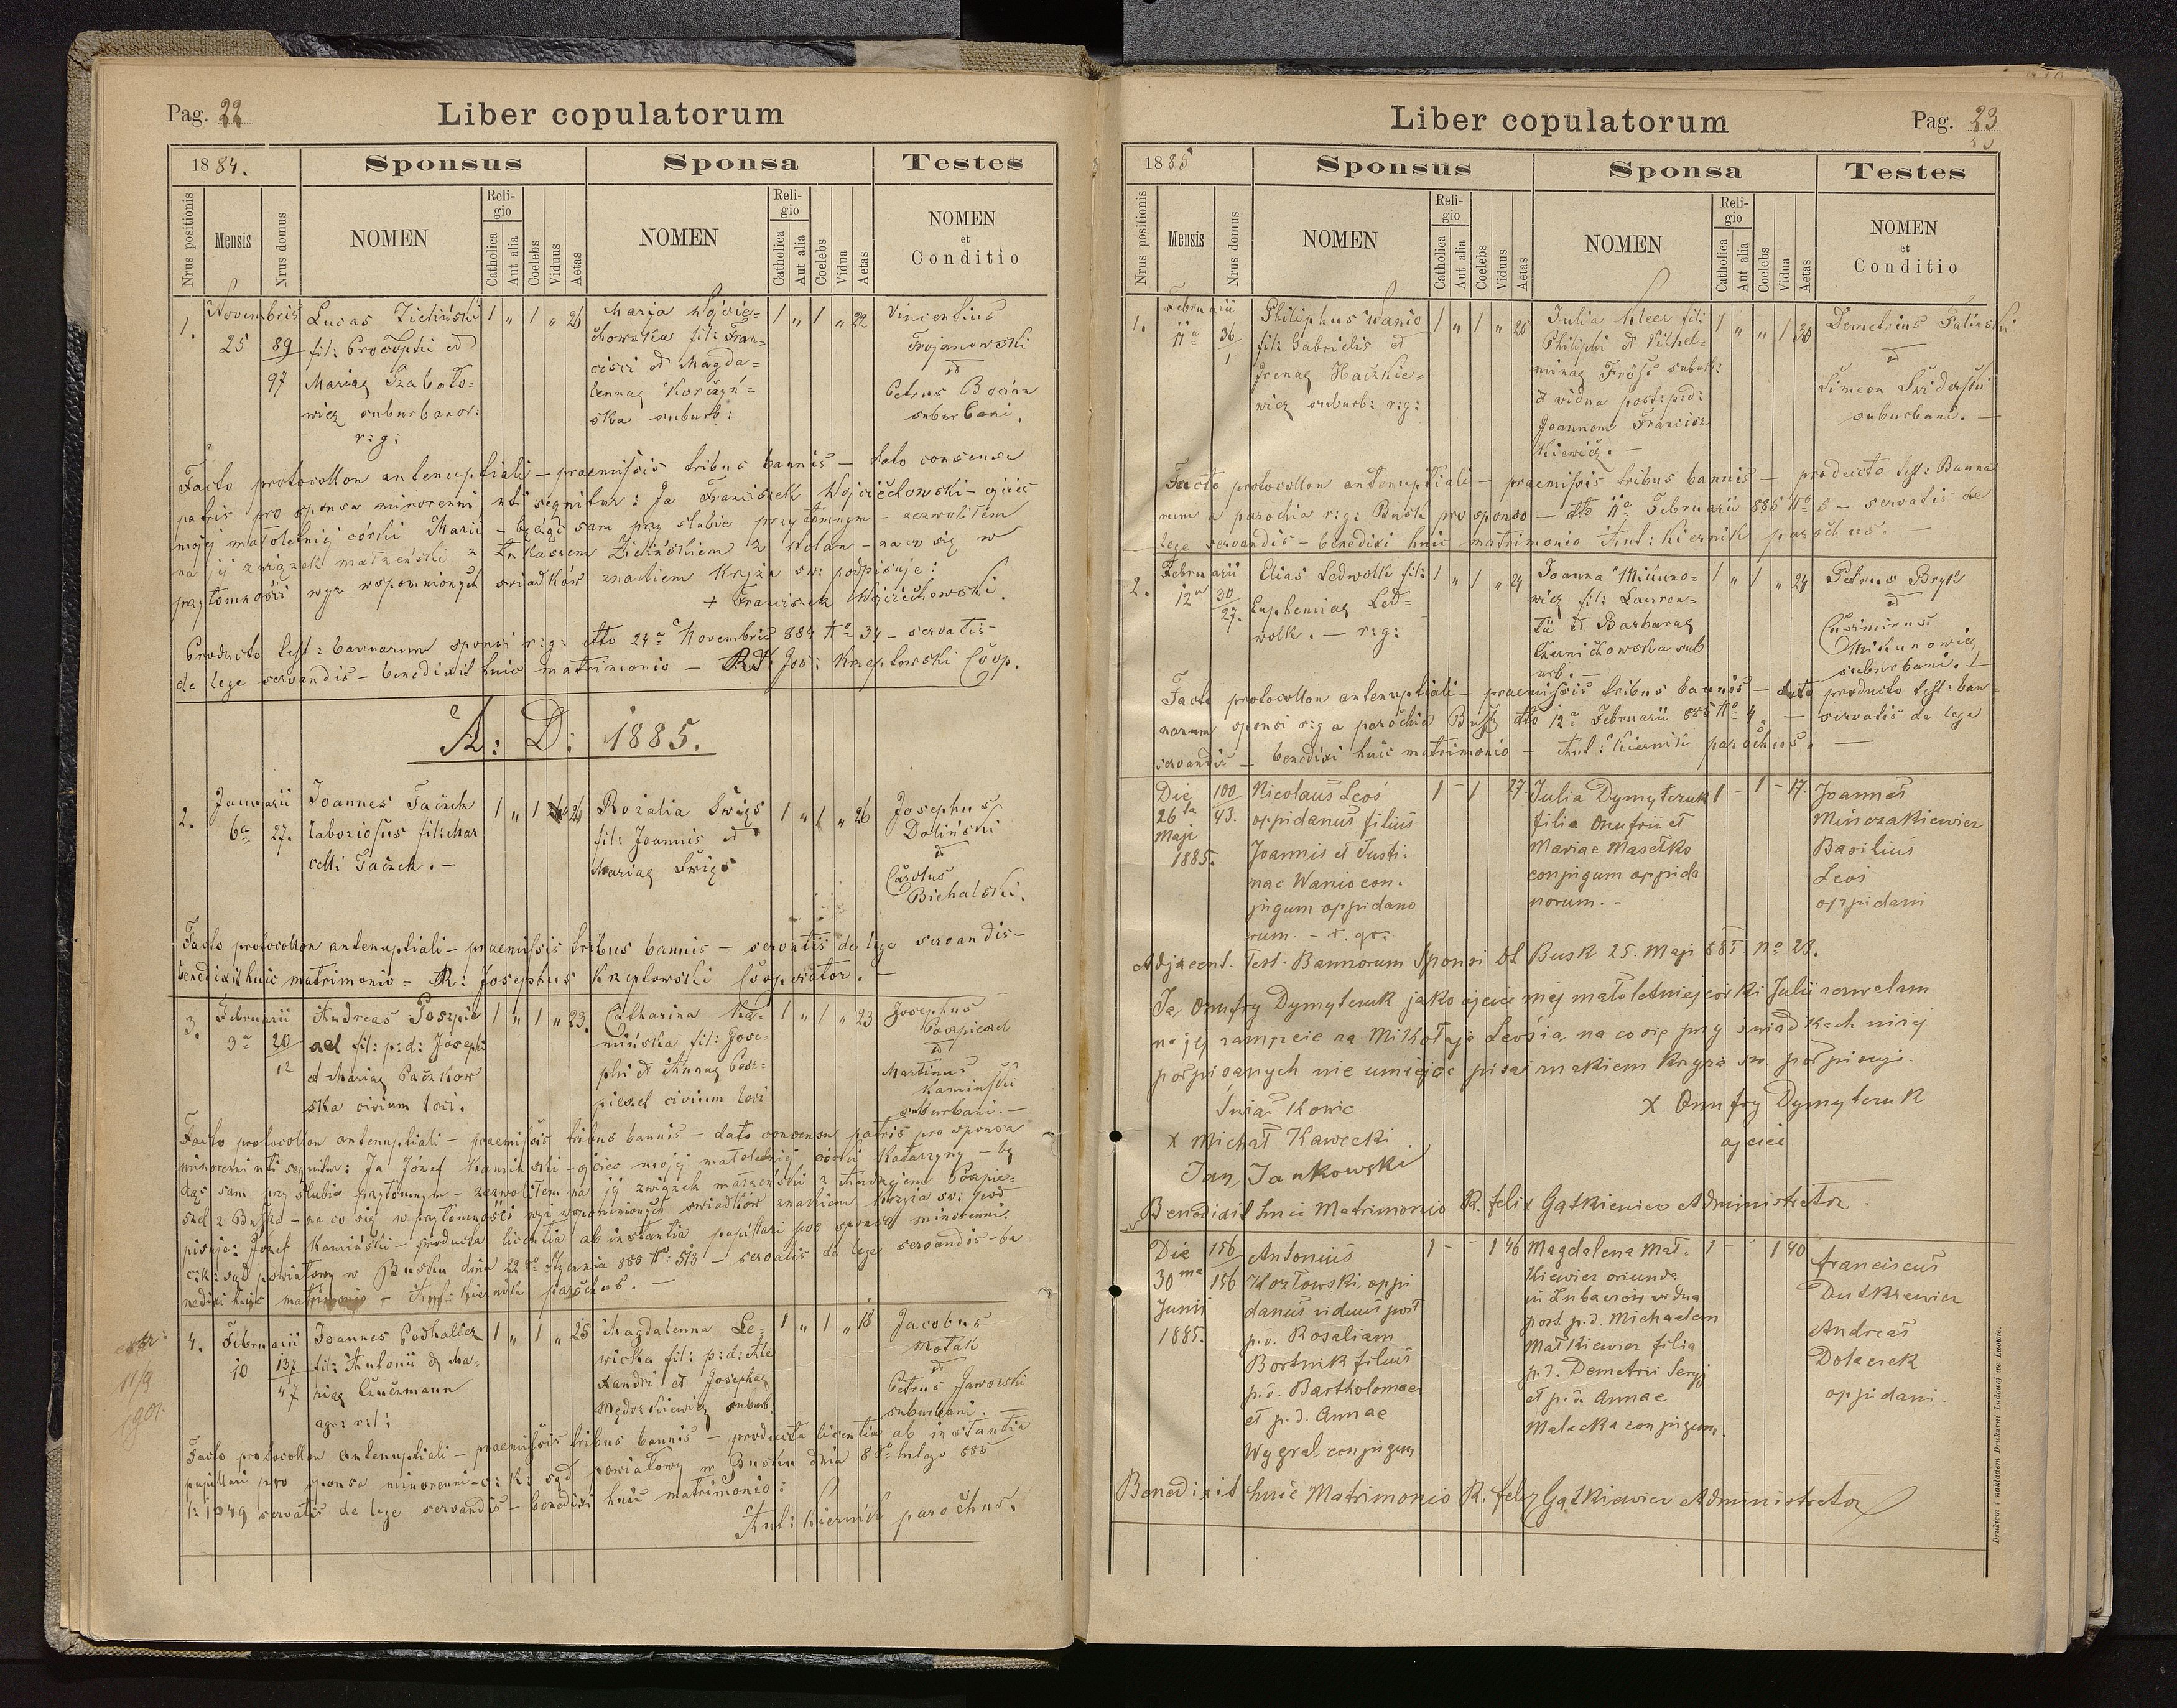 Pag. 22
Liber copulatorum
1884.
Sponsus
Sponsa
Testes
Nrus positionis
Mensis
Nrus domus
NOMEN
Religio
Catholica
Aut alia
Coelebs
Viduus
Aetas
NOMEN
Religio
Catholica
Aut alia
Coelebs
Vidua
Aetas
NOMEN
et
Conditio
1.
Novembris
25
89
97
Lucas Zieliński
fil: Procophi et
Mariae Szabato=
wicz suburbanor:
r:g:
1 „ 1 „ 26
Marja Wojcie=
chowska fil: Fran=
cisci et Magda=
lennae
ska suburb:
1 „ 1 „ 22
Vincentius
Trojanowski
et
Petrus Bocian
suburbani.
Facto protocollon antenuptiali – praemissis tribus bannis – dato consensu
patris pro sponsa minorenni, uti sequitur: Ja Franciszek Wojciechowski – ojciec
mojej małoletniej córki Marii – będąc sam przy slubie przytomnym – zezwolitem
na jej związek małzeński z Łukaszem Zielińskiem z Wolan – na co się w
przytomności wyz wspomnionych swiadków znakiem Krzyża sw: podpisuje:
+ Franciszek Wojciechowski.
Producto test: bannarum sponsi r:g: dto 24a Novembris 884 No 34 – servatis
de lege servandis – benedixit huic matrimonio – Jos: Krzeptowski Coop.
A: D: 1885.
2.
Januarii
6a
27.
Joannes Taczek
laboriosus fil: Mar
celli Taczek. –
1 „ 1 „ 24
Rozalia Swigs
fil: Joannis et
Mariae Swigs
1 „ 1 „ 26
Josephus
Doliński
et
Carolus
Bichalski.
Facto protocollon antenuptiali – praemissis tribus bannis – servatis de lege servandis –
benedixit huic matrimonio – R: Josephus Krzeptowski Cooperator. –
3.
Februarii
3a
20
12
Andreas Poszpie
ael fil: p:d: Josephi
et Mariae Paczkow
ska civium loci.
1 „ 1 „ 23.
Catharina Ka=
mińska fil: Jose=
phi et Annae Posz=
pieszel civium loci
1 „ 1 „ 23
Josephus
Poszpieszel
et
Martinus
Kaminski
suburbani. –
Facto protocollon antenuptiali – praemissis tribus bannis – dato consensu patris pro sponsa
minorenni uti sequitur: Ja Józef Kaminski – ojciec mojej małoletniej córki Katarzyny – bę
dąc sam przy slubie przytomnym – zezwolitem na jej związek małżeński z Andrzejem Poszpie=
szel z Buska – na co się w przytomności wyz wspomnionych swiadków znakiem Krzyża sw: pod
pisuje: Józef Kamiński – producta licentia ab instantia pupillari pro sponsa minorenni:
c:k: sąd powiatowy w Busku dnia 22go Stycznia 885 No: 513 – servatis de lege servandis – be
nedixi huic matrimonio – Ant: Kiernik parochus. –
4.
Februarii
10
137
47
Joannes Podhalicz
fil: Antonii et Ma=
riae Czuczmann
agr: r:l:
1 „ 1 „ 25
Magdalenna Le=
wicka fil: p:d: Ale
xandri et Josephae
suburb.
1 „ 1 „ 18
Jacobus
Motak
et
Petrus Jaworski
suburbani.
Facto protocollon antenuptiali – praemissis tribus bannis – producta licentia ab instantia
pupillari pro sponsa minorenni – c: k: sąd powiatowy w Busku dnia 8go lutego 885
servatis de lege servandis – benedixi huic matrimonio:
Ant: Kiernik parochus.
extr:
11/9
1901.
Liber copulatorum
Pag. 23
1885
Sponsus
Sponsa
Testes
Nrus positionis
Mensis
Nrus domus
NOMEN
Religio
Catholica
Aut alia
Coelebs
Viduus
Aetas
NOMEN
Religio
Catholica
Aut alia
Coelebs
Vidua
Aetas
NOMEN
et
Conditio
1.
Februarii
11a
36
1
Philiphus Wanio
fil: Gabrielis et
Irenae Haczkie=
wicz suburb: r:g:
1 „ 1 „ 25
Julia Kleer fil:
Philiphi et Vilhel=
minae suburb:
et vidua post: p:d:
Joannem Francisz
kiewicz. –
1 „ „ 1 30
Demetrius Falinski
et
Simeon Swiderski
suburbani. –
Facto protocollon antenuptiali – praemissis tribus bannis – producto test: Banna
rum a parochia r:g: Busk pro sponso – dto 11a Februarii 885 No – servatis de
lege servandis – benedixi huic matrimonio Ant: Kiernik parochus. –
2.
Februarii
12a
30
27.
Elias Ledwolk fil:
Euphemiae Led=
wolk. – r:g:
1 „ 1 „ 24
Joanna
wicz fil: Lauren=
tii et Barbarae
Czernichowska sub
urb. –
1 „ 1 „ 24
Petrus Bryk
et
Casimirus
suburbani. –
Facto protocollon antenuptiali – praemissis tribus bannis – producto test: ban=
narum sponsi r:g a parochia Busk dto 12a Februarii 885 No 4. – servatis de lege
servandis – benedixi huic matrimonio – Ant: Kiernik parochus. –
Die
26ta
Maji
1885.
100
43.
Nicolaus Leoś
oppidanus filius
Joannis et Justi:
nae Wanio con.
jugum oppidano
rum. – r. gr.
1 – 1 27
Julia Dymyteruk
filia Onufrii et
Mariae Masełko
conjugum oppida
norum. –
1 – 1 – 17.
Joannes
Minczakiewicz
Basilius
Leoś
oppidani
Adjacent. Test. Bannorum Sponsi dt Busk 25. Maji 885 No 28.
Ja, Onufry Dymyteruk jako ojciec mej małoletniej córki Julii zezwalam
na jej zamęzcie za Mikołaja Leosia, na co się przy swiadkach niżej
podpisanych nie umiejąc pisać znakiem krzyża sw. podpisuję.
Świadkowie
x Onufry Dymyteruk
ojciec
x Michał Kawecki
Jan Jankowski
Benedixit huic Matrimonio R. Felix Gątkiewicz Administrator.
Die
30ma
Junii
1885.
156
156
Antonius
Kozłowski oppi
danus viduus post
p.d. Rosaliam
Bortnik filius
p.d. Bartholomaei
et p.d. Annae
Wygral conjugum
1 – – 1 46
Magdalena Mał=
kiewicz oriunda
in Lubaczów vidua
post p.d. Michaelem
Małkiewicz filia
p.d. Demetrii Seryj
et p.d. Annae
Malecka conjugum.
1 – – 1 40
Franciscus
Dutkiewicz
Andreas
Dolacrek
oppidani.
Benedixit huic Matrimonio R. Felix Gątkiewicz Administrator
Drukiem i nakładem Drukarni Ludowej we Lwowie.